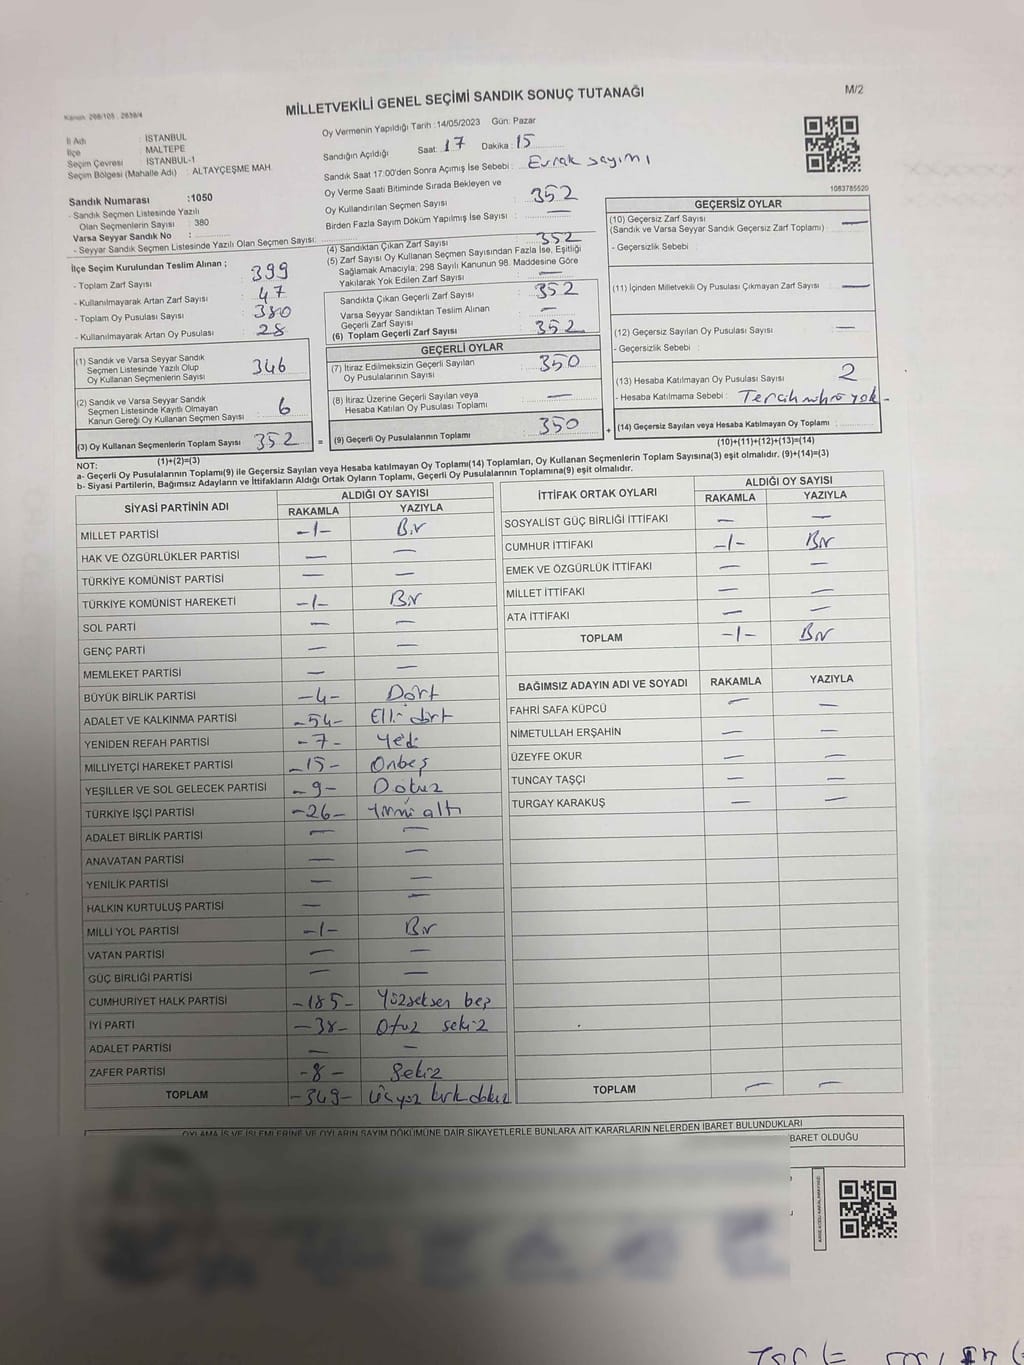 MİLLETVEKİLİ GENEL SEÇİMİ SANDIK SONUÇ TUTANAĞI
M/2
Kanun 298/105 , 2839/4
Oy Vermenin Yapıldığı Tarih :14/05/2023 Gün: Pazar
İl Adı : İSTANBUL
İlçe : MALTEPE
Seçim Çevresi : İSTANBUL-1
Seçim Bölgesi (Mahalle Adı) : ALTAYÇEŞME MAH
Sandığın Açıldığı Saat : 17 Dakika : 15
Sandık Saat 17:00'den Sonra Açımış İse Sebebi : Evrak sayımı
Oy Verme Saati Bitiminde Sırada Bekleyen ve
Oy Kullandırılan Seçmen Sayısı : 352
Birden Fazla Sayım Döküm Yapılmış İse Sayısı : —
1083785520
Sandık Numarası :1050
- Sandık Seçmen Listesinde Yazılı
Olan Seçmenlerin Sayısı : 380
Varsa Seyyar Sandık No :
- Seyyar Sandık Seçmen Listesinde Yazılı Olan Seçmen Sayısı:
İlçe Seçim Kurulundan Teslim Alınan ;
- Toplam Zarf Sayısı : 399
- Kullanılmayarak Artan Zarf Sayısı : 47
- Toplam Oy Pusulası Sayısı : 380
- Kullanılmayarak Artan Oy Pusulası : 28
(1) Sandık ve Varsa Seyyar Sandık
Seçmen Listesinde Yazılı Olup
Oy Kullanan Seçmenlerin Sayısı : 346
(2) Sandık ve Varsa Seyyar Sandık
Seçmen Listesinde Kayıtlı Olmayan
Kanun Gereği Oy Kullanan Seçmen Sayısı : 6
(3) Oy Kullanan Seçmenlerin Toplam Sayısı : 352
(1)+(2)=(3)
(4) Sandıktan Çıkan Zarf Sayısı : 352
(5) Zarf Sayısı Oy Kullanan Seçmen Sayısından Fazla İse, Eşitliği
Sağlamak Amacıyla; 298 Sayılı Kanunun 98. Maddesine Göre
Yakılarak Yok Edilen Zarf Sayısı : —
Sandıkta Çıkan Geçerli Zarf Sayısı : 352
Varsa Seyyar Sandıktan Teslim Alınan
Geçerli Zarf Sayısı : —
(6) Toplam Geçerli Zarf Sayısı : 352
GEÇERLİ OYLAR
(7) İtiraz Edilmeksizin Geçerli Sayılan
Oy Pusulalarının Sayısı : 350
(8) İtiraz Üzerine Geçerli Sayılan veya
Hesaba Katılan Oy Pusulası Toplamı : —
= (9) Geçerli Oy Pusulalarının Toplamı : 350 +
GEÇERSİZ OYLAR
(10) Geçersiz Zarf Sayısı
(Sandık ve Varsa Seyyar Sandık Geçersiz Zarf Toplamı) : —
- Geçersizlik Sebebi :
(11) İçinden Milletvekili Oy Pusulası Çıkmayan Zarf Sayısı : —
(12) Geçersiz Sayılan Oy Pusulası Sayısı : —
- Geçersizlik Sebebi :
(13) Hesaba Katılmayan Oy Pusulası Sayısı : 2
- Hesaba Katılmama Sebebi : Tercih mührü yok -
(14) Geçersiz Sayılan veya Hesaba Katılmayan Oy Toplamı :
(10)+(11)+(12)+(13)=(14)
NOT:
a- Geçerli Oy Pusulalarının Toplamı(9) ile Geçersiz Sayılan veya Hesaba katılmayan Oy Toplamı(14) Toplamları, Oy Kullanan Seçmenlerin Toplam Sayısına(3) eşit olmalıdır. (9)+(14)=(3)
b- Siyasi Partilerin, Bağımsız Adayların ve İttifakların Aldığı Ortak Oyların Toplamı, Geçerli Oy Pusulalarının Toplamına(9) eşit olmalıdır.
SİYASİ PARTİNİN ADI ALDIĞI OY SAYISI
RAKAMLA YAZIYLA
MİLLET PARTİSİ -1- Bir
HAK VE ÖZGÜRLÜKLER PARTİSİ — —
TÜRKİYE KOMÜNİST PARTİSİ — —
TÜRKİYE KOMÜNİST HAREKETİ -1- Bir
SOL PARTİ — —
GENÇ PARTİ — —
MEMLEKET PARTİSİ — —
BÜYÜK BİRLİK PARTİSİ -4- Dört
ADALET VE KALKINMA PARTİSİ -54- Elli dört
YENİDEN REFAH PARTİSİ -7- Yedi
MİLLİYETÇİ HAREKET PARTİSİ -15- Onbeş
YEŞİLLER VE SOL GELECEK PARTİSİ -9- Dokuz
TÜRKİYE İŞÇİ PARTİSİ -26- Yirmi altı
ADALET BİRLİK PARTİSİ — —
ANAVATAN PARTİSİ — —
YENİLİK PARTİSİ — —
HALKIN KURTULUŞ PARTİSİ — —
MİLLİ YOL PARTİSİ -1- Bir
VATAN PARTİSİ — —
GÜÇ BİRLİĞİ PARTİSİ — —
CUMHURİYET HALK PARTİSİ -185- Yüzseksen beş
İYİ PARTİ -38- Otuz sekiz
ADALET PARTİSİ — —
ZAFER PARTİSİ -8- Sekiz
TOPLAM -349- Üçyüz kırk dokuz
İTTİFAK ORTAK OYLARI ALDIĞI OY SAYISI
RAKAMLA YAZIYLA
SOSYALİST GÜÇ BİRLİĞİ İTTİFAKI — —
CUMHUR İTTİFAKI -1- Bir
EMEK VE ÖZGÜRLÜK İTTİFAKI — —
MİLLET İTTİFAKI — —
ATA İTTİFAKI — —
TOPLAM -1- Bir
BAĞIMSIZ ADAYIN ADI VE SOYADI RAKAMLA YAZIYLA
FAHRİ SAFA KÜPCÜ — —
NİMETULLAH ERŞAHİN — —
ÜZEYFE OKUR — —
TUNCAY TAŞÇI — —
TURGAY KARAKUŞ — —
TOPLAM — —
OYLAMA İŞ VE İŞLEMLERİNE VE OYLARIN SAYIM DÖKÜMÜNE DAİR ŞİKAYETLERLE BUNLARA AİT KARARLARIN NELERDEN İBARET BULUNDUKLARI
İBARET OLDUĞU